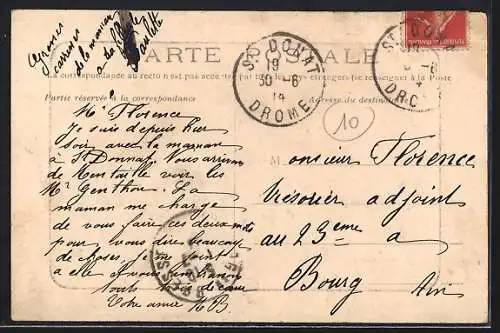 CARTE POSTALE
La correspondance au recto n'est pas acceptée par tous les pays étrangers (se renseigner à la Poste
Partie réservée à la correspondance
Adresse du destinataire
ST DONAT
19
30 - 6
14
DROME
ST DON
DRO
10
Mr Florence
Je suis depuis hier
soir avec la maman
à St Donnat. Nous arrivons
de voir les
Mr Genthon. La
maman me charge
de vous faire ces deux mots
pour vous dire beaucoup
de choses, je me joint
a elle et vous embrasse
tous
Votre amie B
Monsieur Florence
Trésorier adjoint
au 23eme a
Bourg Ain